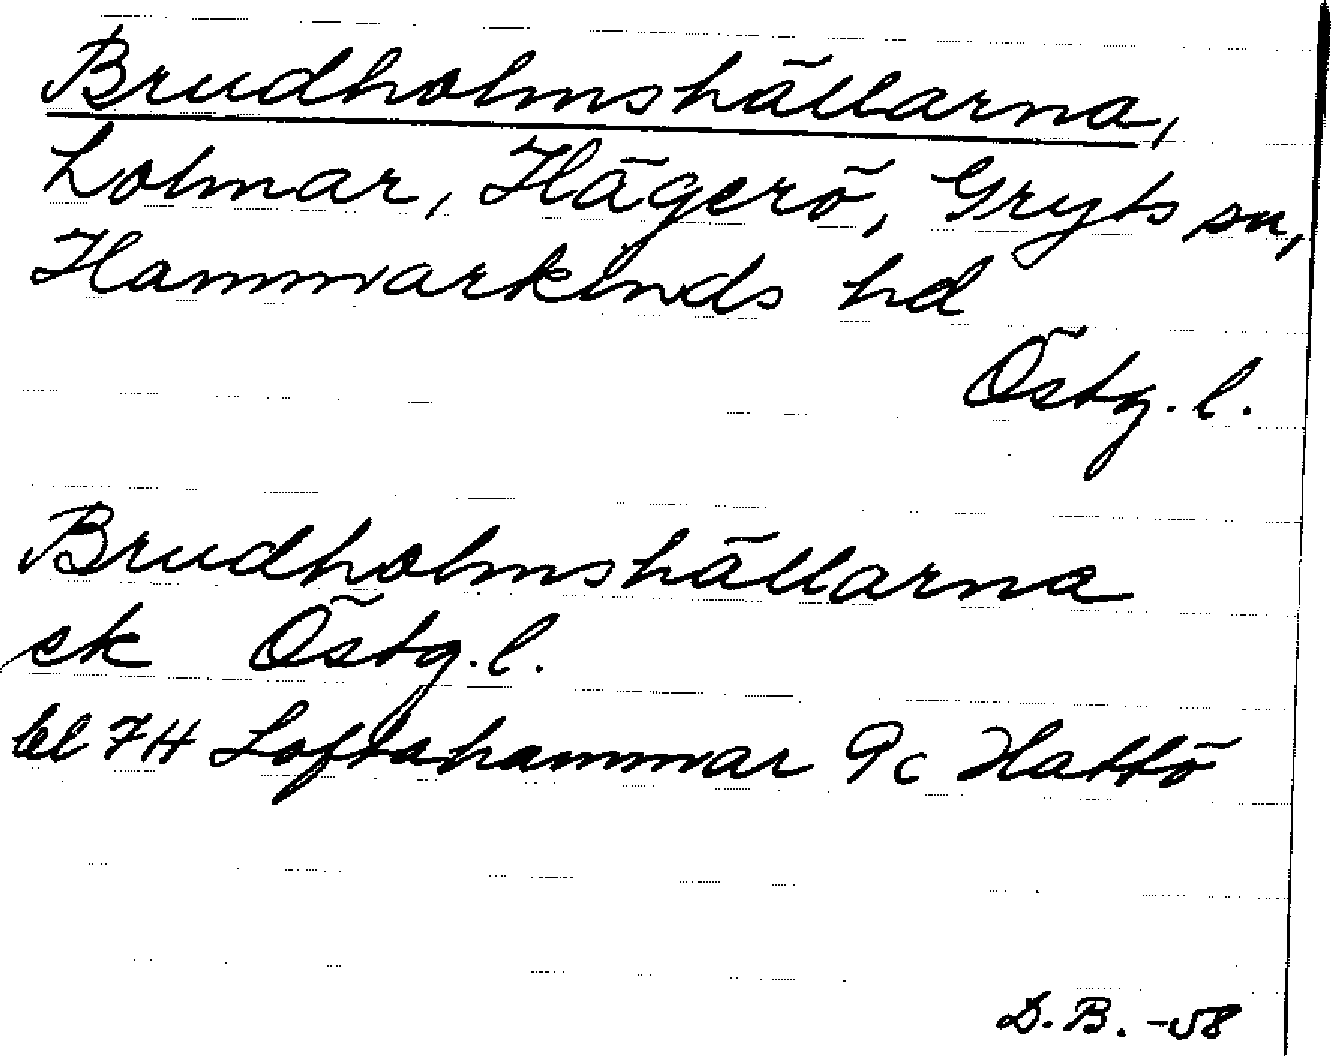 Brudholmshällarna,
holmar, Hägerö, Gryts sn,
Hammarkinds hd
Östg. l.
Brudholmshällarna
ek Östg. l.
bl 7H Loftahammar 9c Hattö
D. B. -58